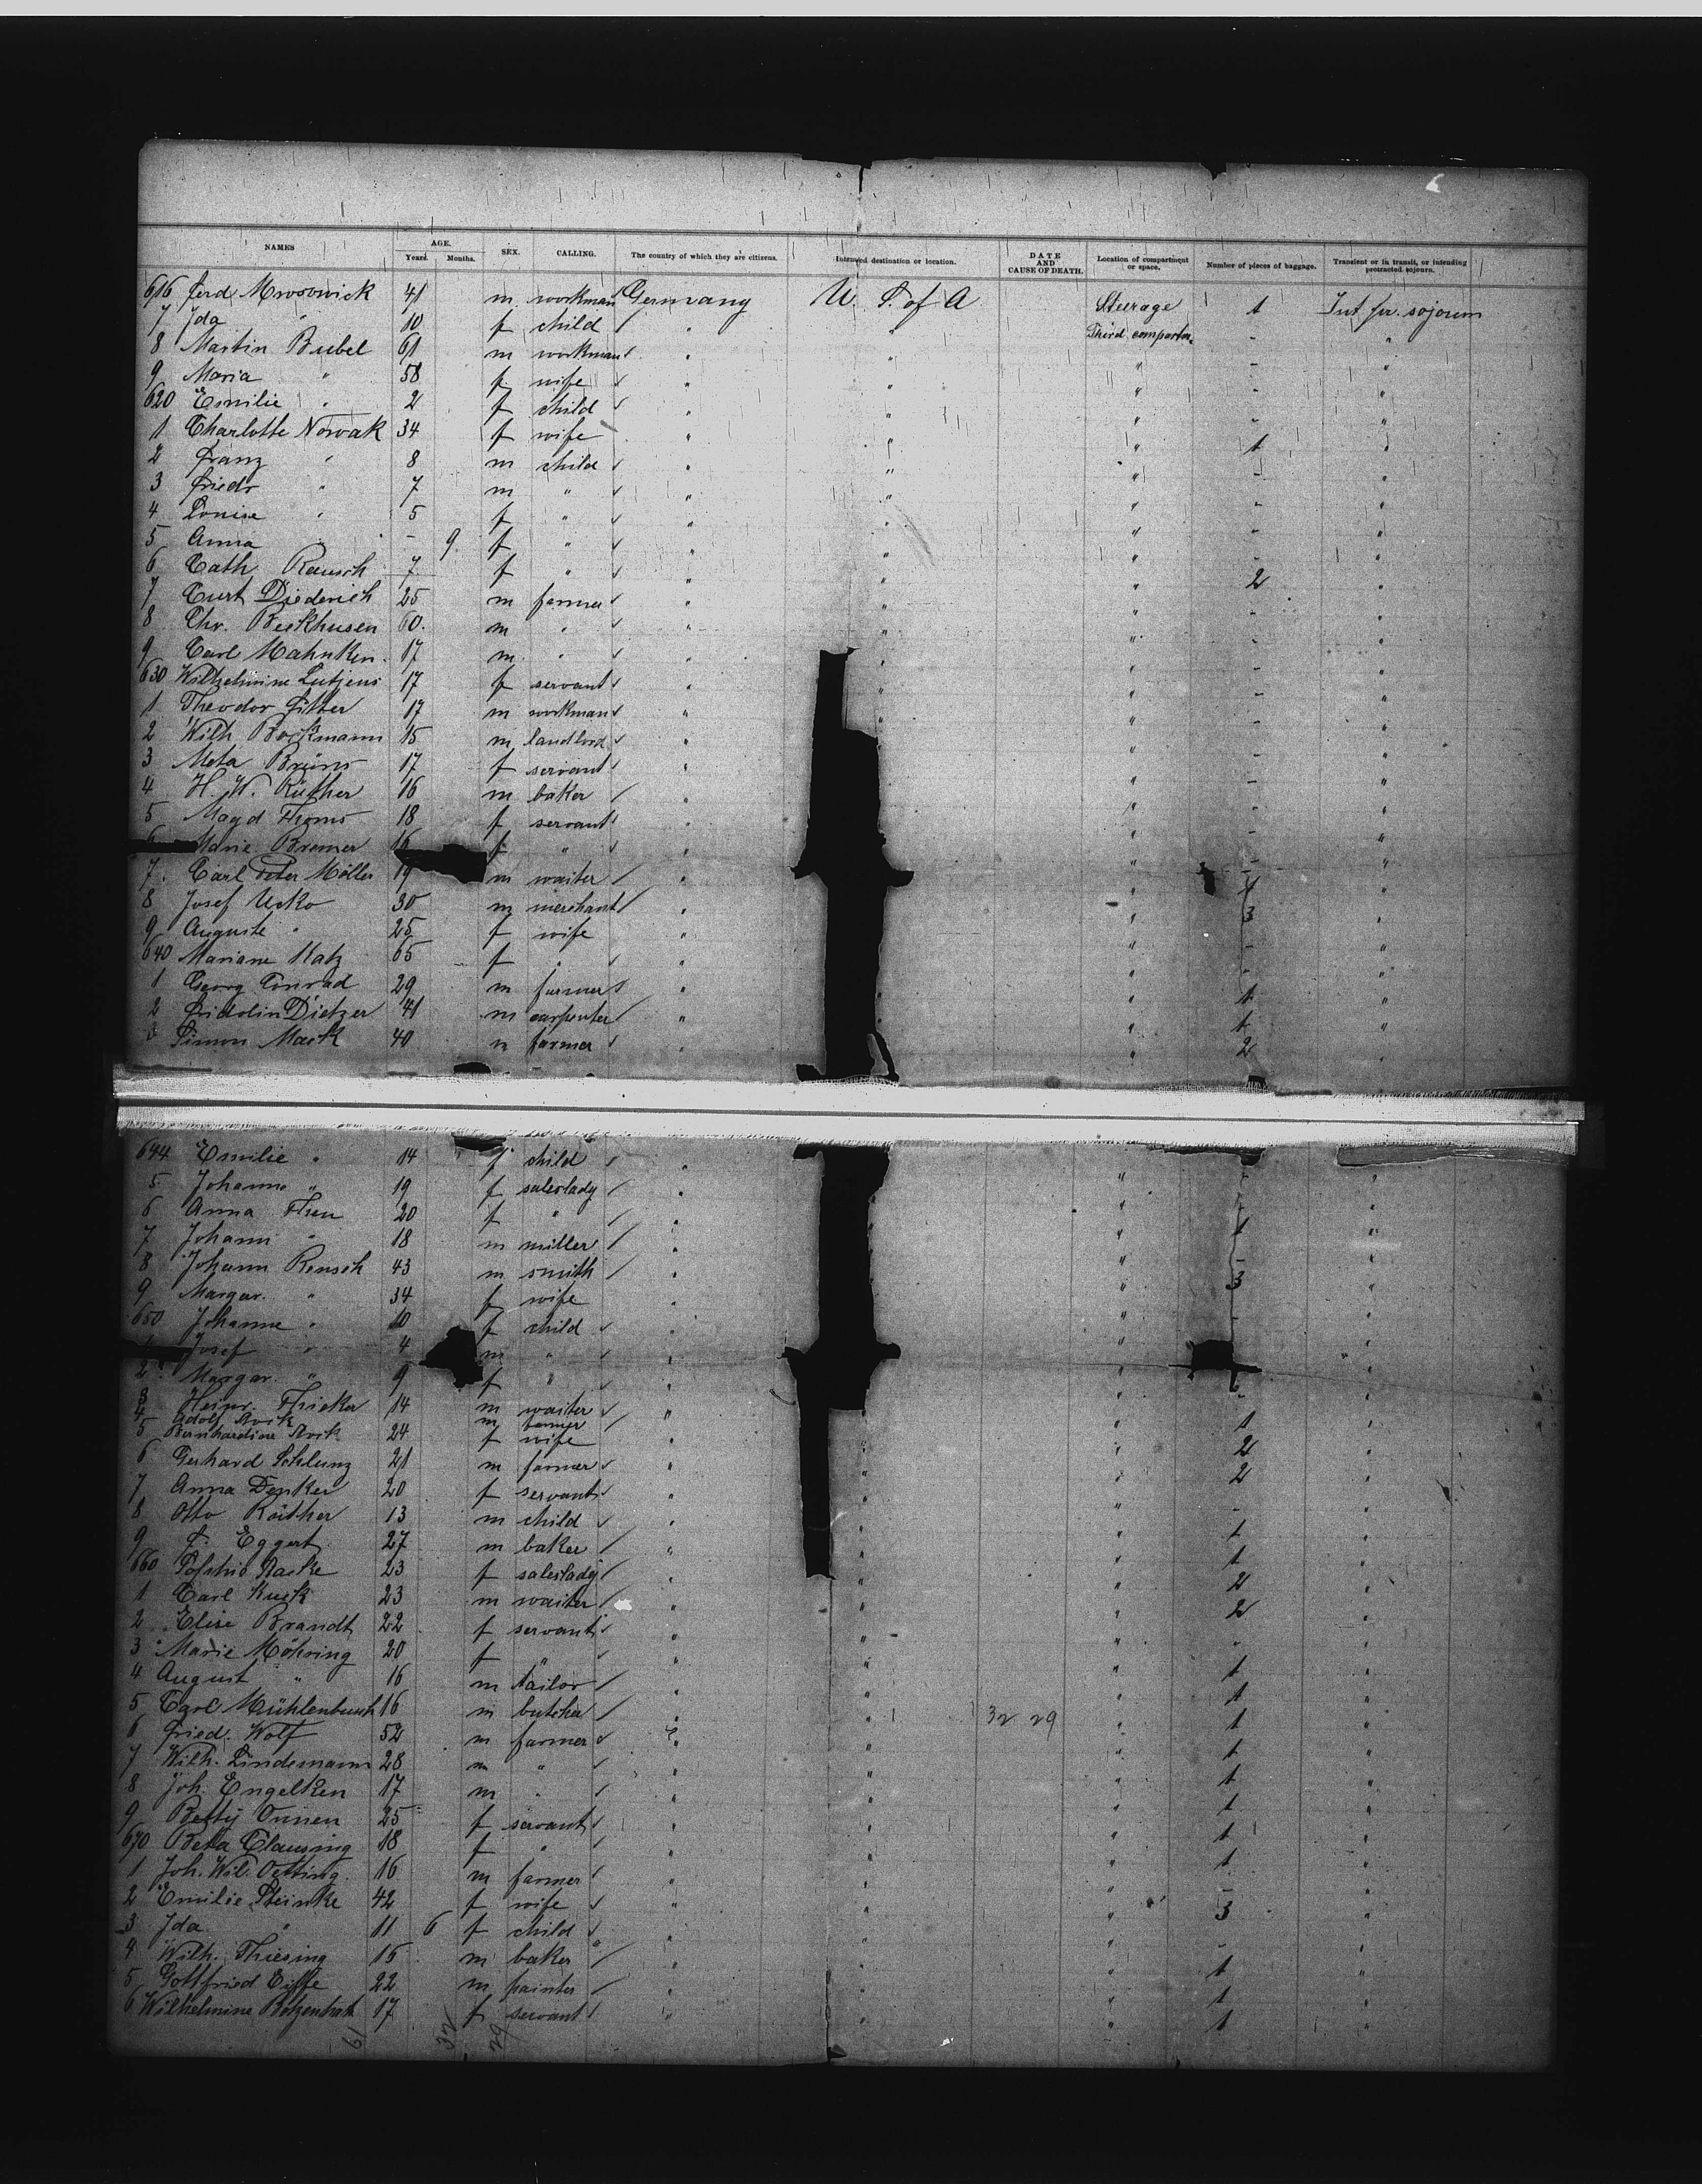 NAMES AGE. Years. Months. SEX. CALLING. The country of which they are citizens. Intended destination or location. DATE AND CAUSE OF DEATH. Location of compartment or space. Number of pieces of baggage. Transient or in transit, or intending protracted sojourn.
616 Ferd 41 m workman Germany U. S. of A Steerage 1 Int for sojourn
7 Ida " 10 f child " " Third comparta. - "
8 Martin Bubel 61 m workman " " " - "
9 Maria " 58 f wife " " " - "
620 Emilie " 2 f child " " " - "
1 Charlotte Nowak 34 f wife " " " 1 "
2 Franz " 8 m child " " " - "
3 Friedr " 7 m " " " " - "
4 Louise " 5 f " " " " - "
5 Anna " - 9 f " " " " - "
6 Cath Rausch 7 f " " " " 2 "
7 Curt Diederich 25 m farmer " " " - "
8 Chr. Beckhusen 60 m " " " " - "
9 Carl Mahnken 17 m " " " " - "
630 Wilhelmine Lutjens 17 f servant " " " - "
1 Theodor Fitter 17 m workman " " " - "
2 Wilh Bockmann 15 m landlord " " " - "
3 Meta Brüns 17 f servant " " - "
4 H. W. Rüther 16 m baker " " - "
5 Magd Thoms 18 f servant " " - "
6 Marie Bremer 16 f " " " - "
7 Carl Peter Möller 19 m waiter " " 1 "
8 Josef Ucko 30 m merchant " " 3 "
9 Auguste " 25 f wife " " - "
640 Mariane Katz 65 f " " " - "
1 Georg Conrad 29 m farmer " " 1 "
2 Fridolin Dietzer 41 m carpenter " " 1 "
3 Simon Mack 40 m farmer " " 2 "
644 Emilie " 14 f child " " - "
5 Johanna " 19 f saleslady " " - "
6 Anna Then 20 f " " " 1 "
7 Johann " 18 m miller " " - "
8 Johann Rensch 43 m smith " " 3 "
9 Margar. " 34 f wife " " - "
650 Johanne " 10 f child " " - "
1 Josef " 4 m " " " - "
2 Margar. " 9 f " " " - "
3 Heinr. Thicker 14 m waiter " " 1 "
4 Adolf m farmer
5 Bernhardine 24 f wife " " 2 "
6 Gerhard Schlung 21 m farmer " " 2 "
7 Anna Denker 20 f servant " " - "
8 Otto Rüther 13 m child " " 1 "
9 Eggert 27 m baker " " 1 "
660 Sophie 23 f saleslady " " 2 "
1 Carl Kuck 23 m waiter " " " 2 "
2 Elise Brandt 22 f servant " " " - "
3 Marie Möhring 20 f " " " " 1 "
4 August " 16 m tailor " " " 1 "
5 Carl Mühlenbusch 16 m butcher " " 32 29 " 1 "
6 Fried. Wolf 52 m farmer " " " 1 "
7 Wilh. Lindemann 28 m " " " " 1 "
8 Joh. Engelken 17 m " " " " 1 "
9 Betty Onnen 25 f servant " " " 1 "
670 Beta Clausing 18 f " " " " 1 "
1 Joh. Wil. Oetting 16 m farmer " " " - "
2 Emilie Steinke 42 f wife " " " 3 "
3 Ida " 11 6 f child " " " - "
4 Wilh. Thiesing 15 m baker " " " 1 "
5 Gottfried Eiffe 22 m painter " " " 1 "
6 Wilhelmine 17 f servant " " " 1 "
61 32 29